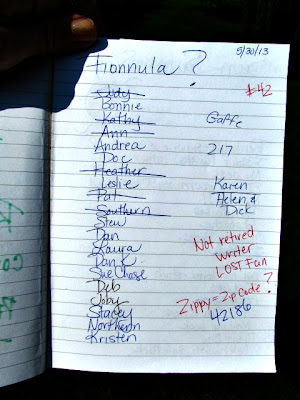 5/30/13
Fionnula ?
#42
Judy
Bonnie
Kathy
Gaffe
Ann
Andrea
217
Doc
Heather
Leslie
Karen
Pat
Helen &
Southern
Dick
Stew
Dan
Laura
Not retired
Dan K
writer
Sue Chase
LOST Fan
Deb
Joby
Zippy = Zip Code ?
Stacey
42186
Northern
Kristen